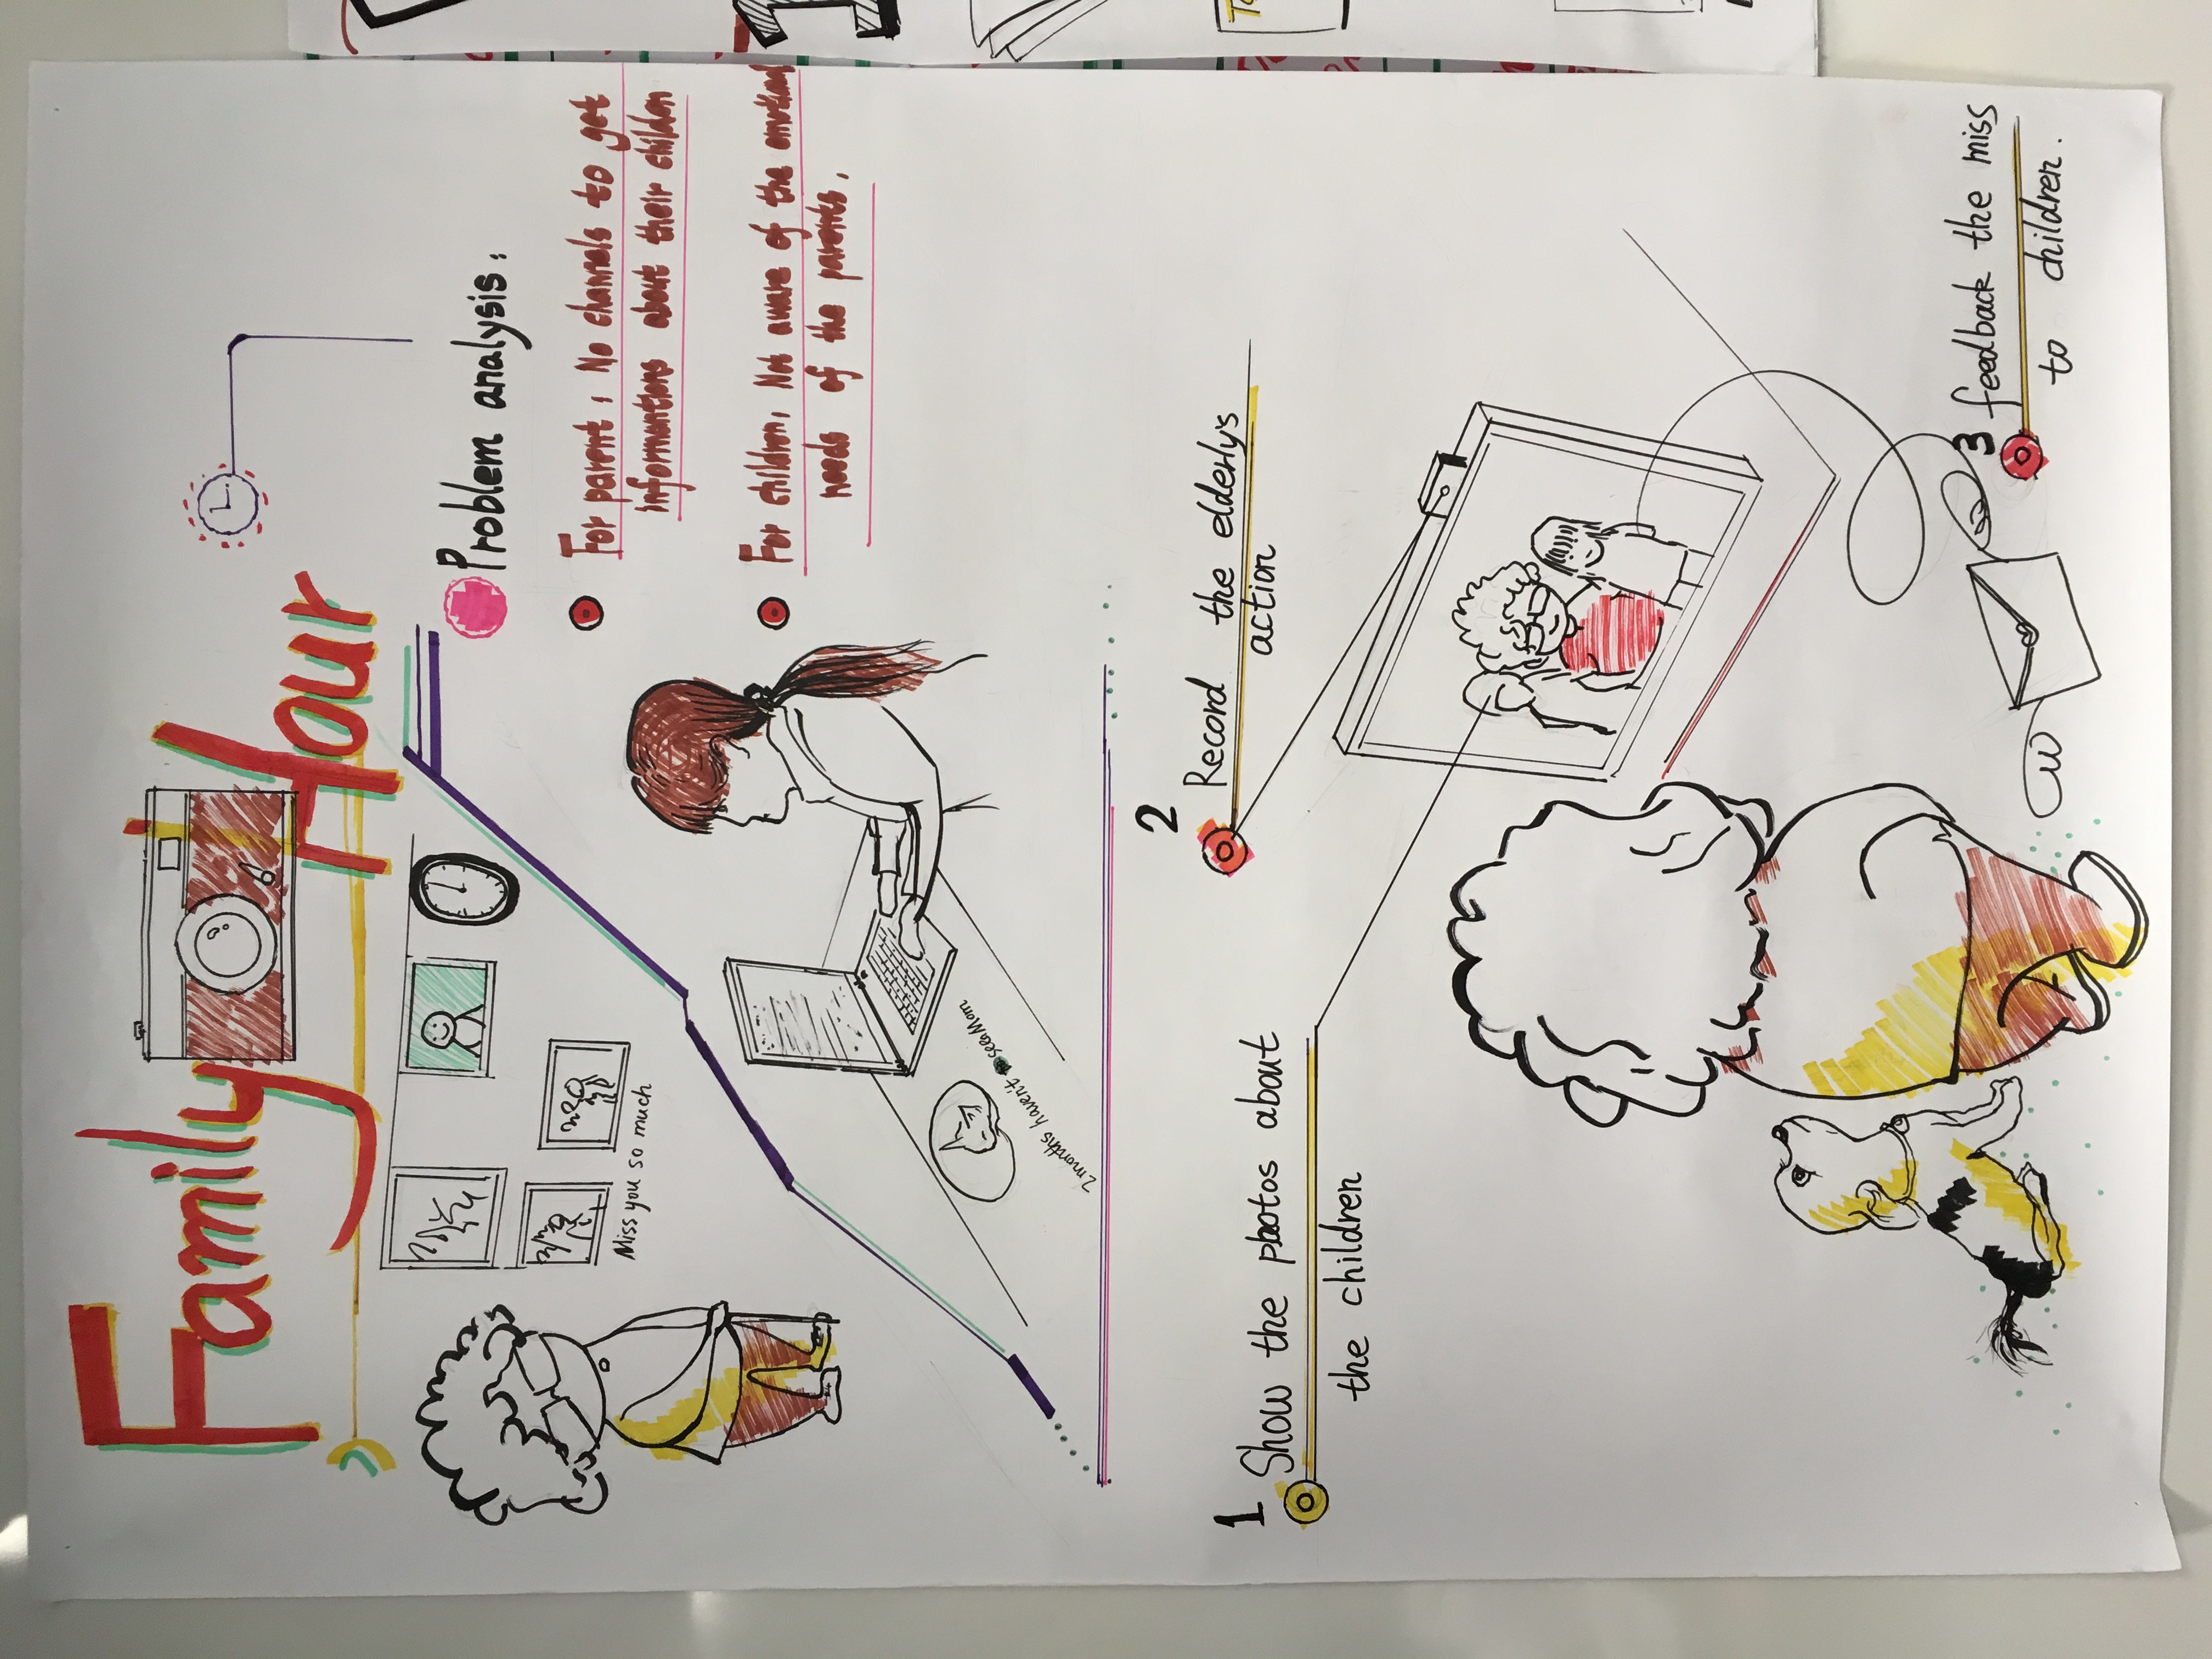 Family Hour
Miss you so much
Problem analysis:
For parent: No channels to get
informantions about their childen
For children: Not aware of the emotional
needs of the parents.
2 months haven't seen Mom
1
Show the photos about
the children
2
Record the elderly's
action
3 feedback the miss
to children.